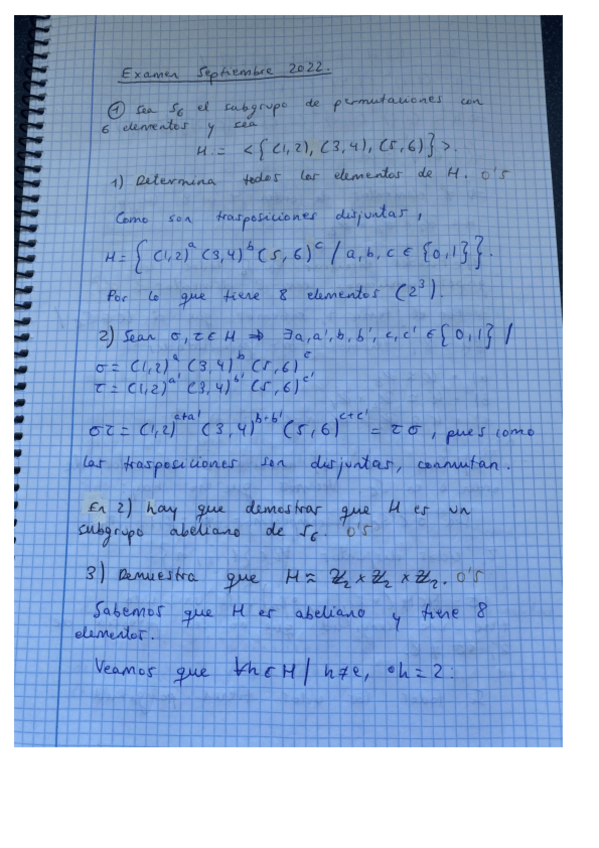 Examen Septiembre 2022.
① Sea S₆ el subgrupo de permutaciones con
6 elementos y sea
H = <{(1,2), (3,4), (5,6)}>.
1) Determina todos los elementos de H. 0'5
Como son trasposiciones disjuntas,
H = {(1,2)ᵃ (3,4)ᵇ (5,6)ᶜ / a, b, c ∈ {0,1}}.
Por lo que tiene 8 elementos (2³).
2) Sean σ, τ ∈ H ⇒ ∃a,a',b,b',c,c' ∈ {0,1} /
σ = (1,2)ᵃ (3,4)ᵇ (5,6)ᶜ
τ = (1,2)ᵃ' (3,4)ᵇ' (5,6)ᶜ'
στ = (1,2)ᵃ⁺ᵃ' (3,4)ᵇ⁺ᵇ' (5,6)ᶜ⁺ᶜ' = τσ, pues como
las trasposiciones son disjuntas, conmutan.
En 2) hay que demostrar que H es un
subgrupo abeliano de S₆. 0'5
3) Demuestra que H ≈ ℤ₂ × ℤ₂ × ℤ₂. 0'5
Sabemos que H es abeliano y tiene 8
elementos.
Veamos que ∀h ∈ H / h ≠ e, °h = 2: